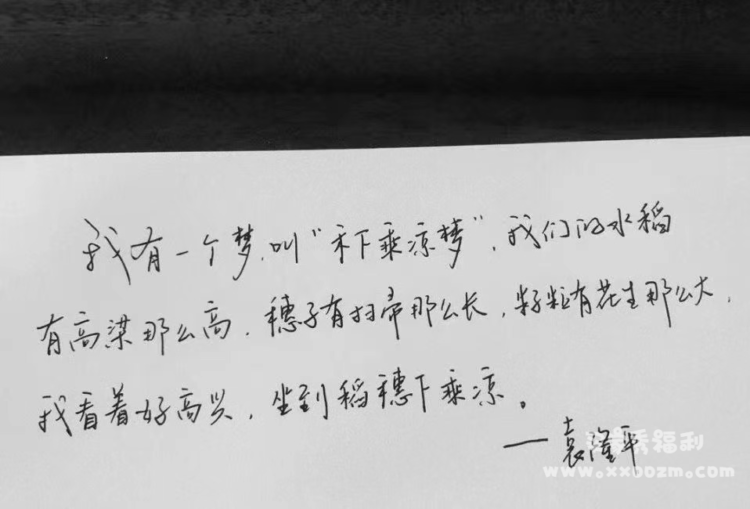 我有一个梦,叫“禾下乘凉梦”,我们的水稻
有高梁那么高,穗子有扫帚那么长,籽粒有花生那么大,
我看着好高兴,坐到稻穗下乘凉。
— 袁隆平
福利
www.xxoozm.com